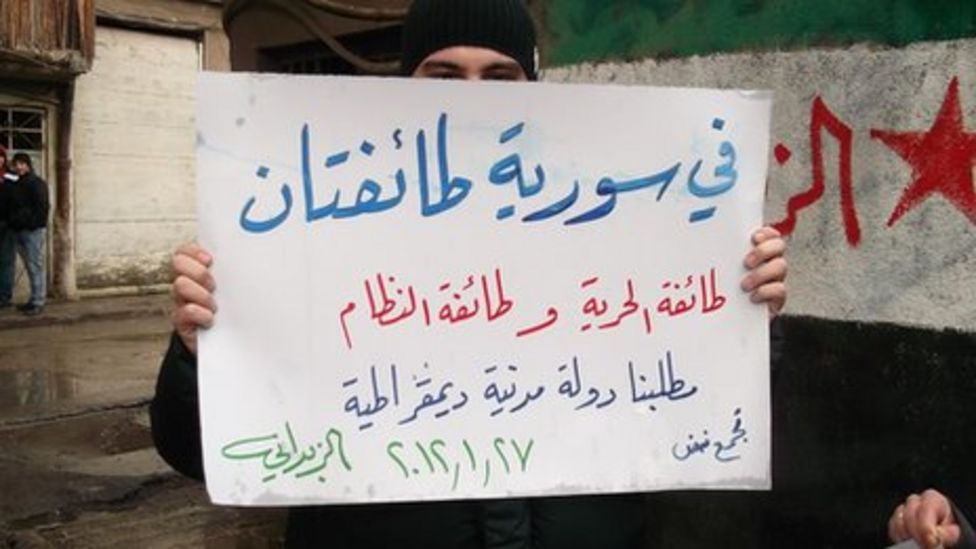 في سورية طائفتان
طائفة الحرية و طائفة النظام
مطلبنا دولة مدنية ديمقراطية
تجمع نبض
٢٠١٢/١/٢٧
الزبداني
الز